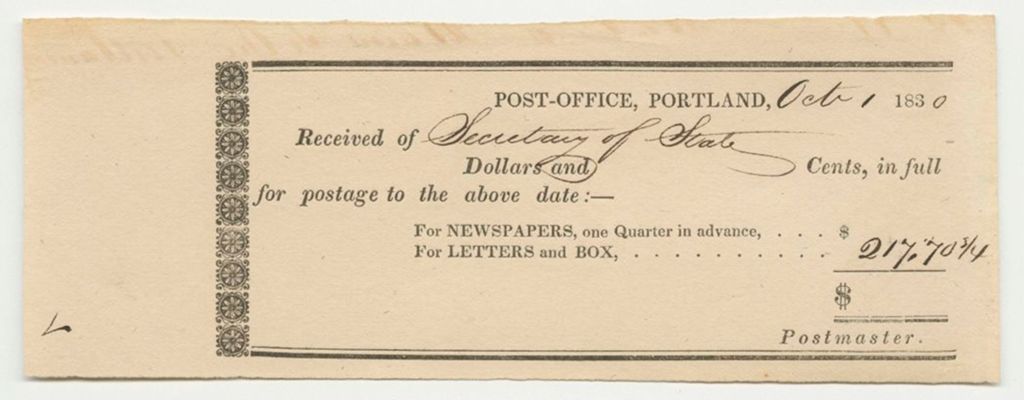 POST-OFFICE, PORTLAND, Oct 1 1830
Received of Secretary of State
Dollars and Cents, in full
for postage to the above date:—
For NEWSPAPERS, one Quarter in advance, . . . . $
For LETTERS and BOX, . . . . . . . . . . . 217.70 3/4
$
Postmaster.